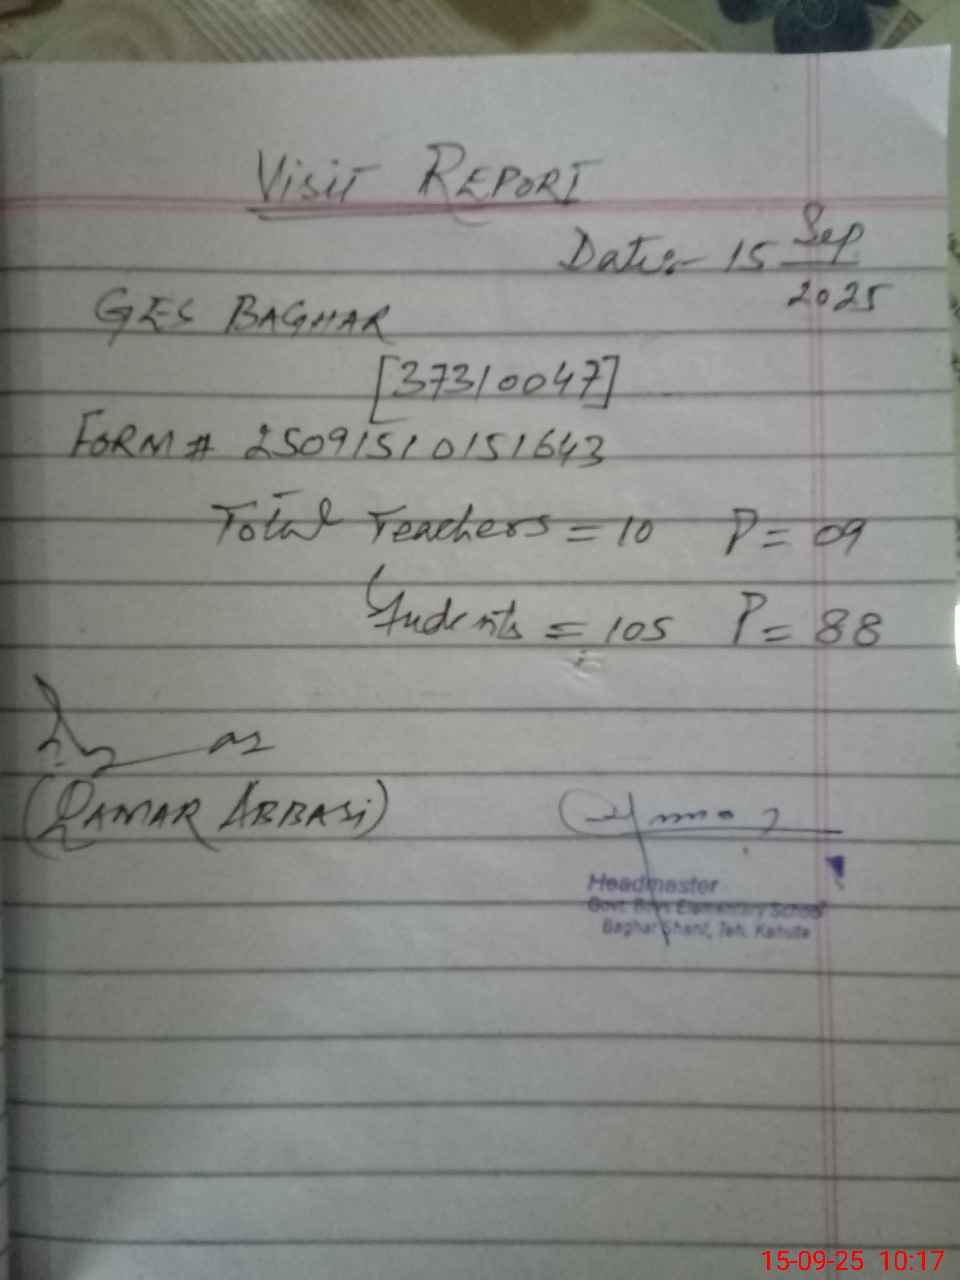 VISIT REPORT
Date:- 15 Sep
2025
GES BAGHAR
[37310047]
FORM # 25091510151643
Total Teachers = 10 P = 09
Students = 105 P = 88
(QAMAR ABBASI)
Headmaster
Govt. Boys Elementary School
Baghar Sharif, Teh. Kahuta
15-09-25 10:17